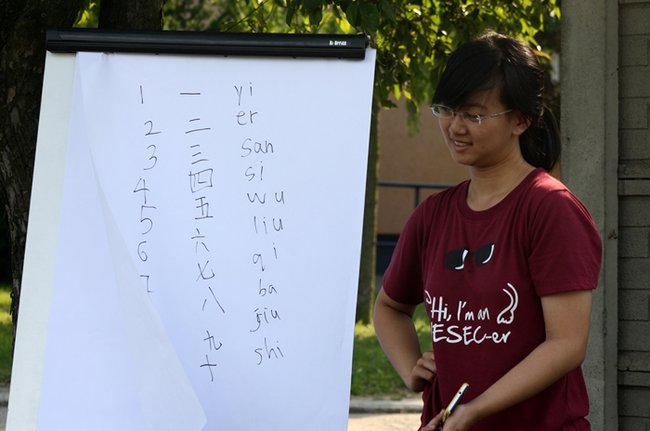 Bi-OFFICE
1 一 yi
2 二 er
3 三 san
4 四 si
5 五 wu
6 六 liu
7 七 qi
八 ba
九 jiu
十 shi
Hi, I'm an
ESEC-er